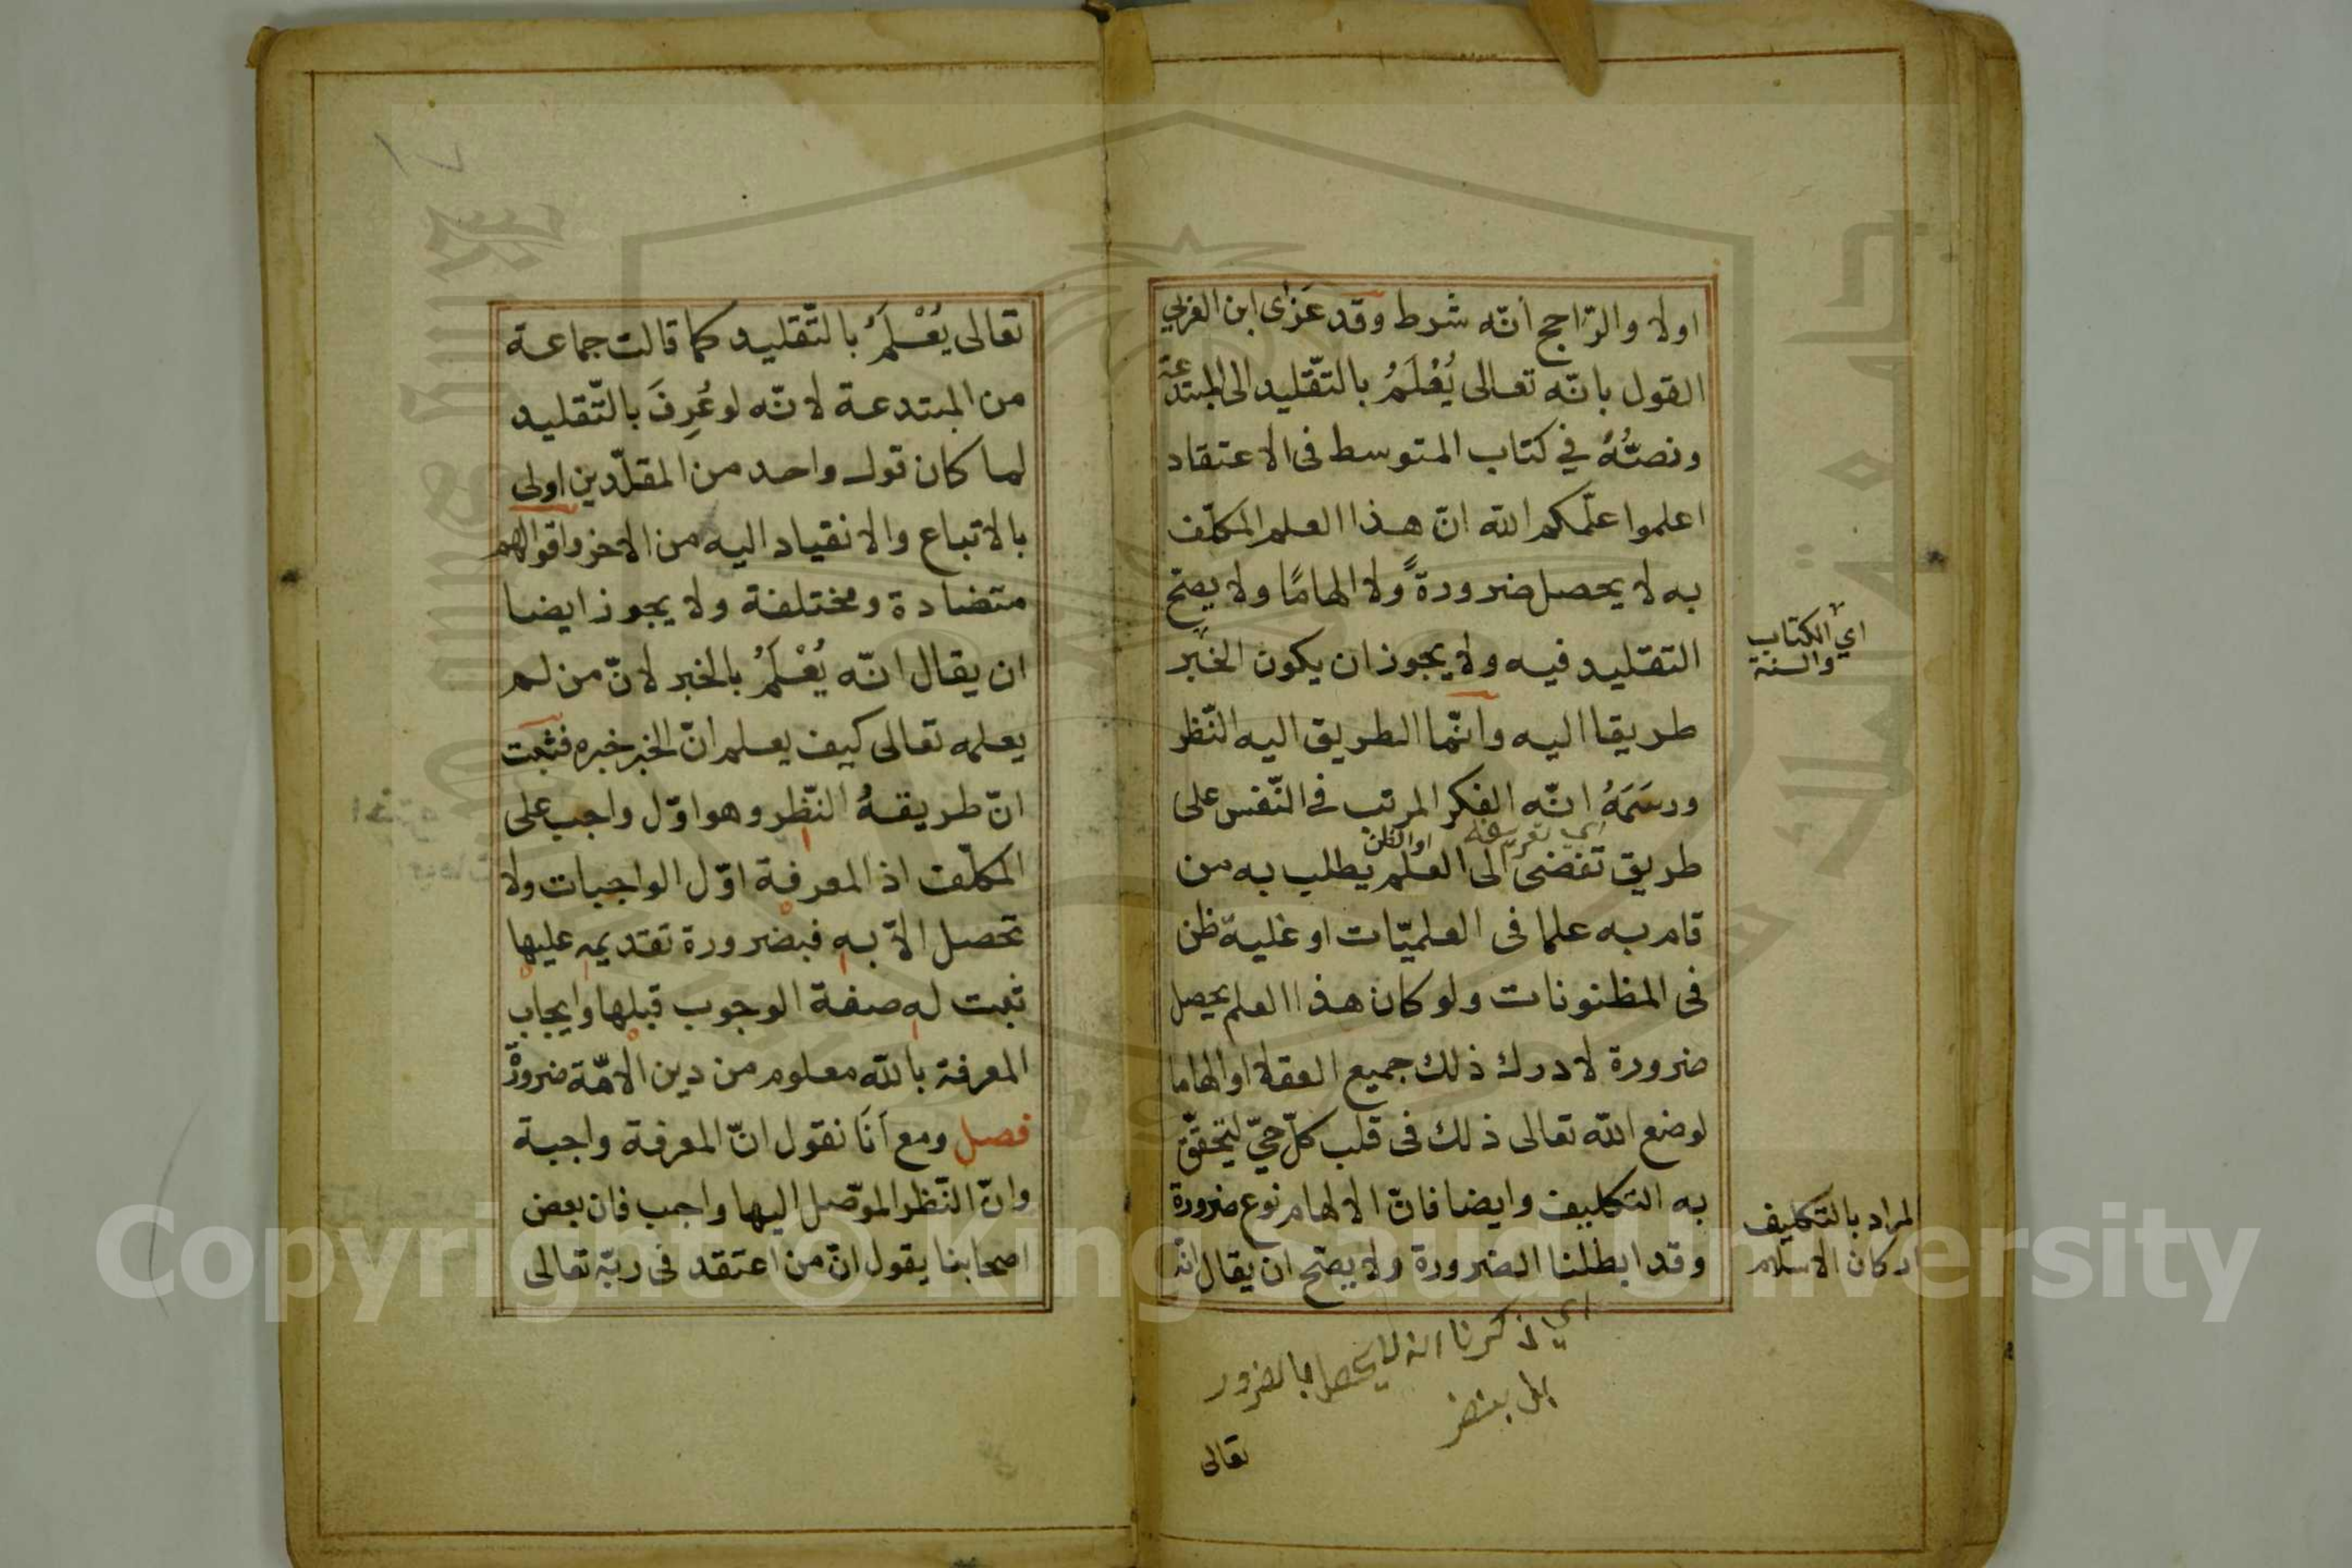 اولا والرّاجح أنّه شرط وقد عَزٰى ابن العربي
القول بانّه تعالى يُعْلَمُ بالتّقليد الى المبتدعة
ونصُّهُ في كتاب المتوسط فى الاعتقاد
اعلموا علّمكم الله انّ هذا العلم المكلّف
به لا يحصل ضرورةً ولا الهامًا ولا يصحّ
التقليد فيه ولا يجوز ان يكون الخبر
طريقا اليه وانّما الطريق اليه النّظر
ورسَمَهُ انّه الفكر المرتب فى النّفس على
اي تعريفه
او الظن
طريق تفضى الى العلم يطلب به من
قام به علما فى العلميّات او غلبة ظن
فى المظنونات ولو كان هذا العلم يحصل
ضرورة لادرك ذلك جميع العقلا او الهاما
لوضع الله تعالى ذلك فى قلب كلّ حيّ ليتحقّق
به التكليف وايضا فانّ الالهام نوع ضرورة
وقد ابطلنا الضرورة ولا يصّح ان يقال انّه
اي الكتاب
والسنة
المراد بالتكليف
اركان الاسلام
اي ذكرنا انه لا يحصل بالضرور
تعالى
تعالى يُعْلَمُ بالتّقليد كما قالت جماعة
من المبتدعة لانّه لو عُرِفَ بالتّقليد
لما كان قول واحد من المقلّدين اولى
بالاتباع والانقياد اليه من الاخر واقوالهم
متضادة ومختلفة ولا يجوز ايضا
ان يقال انّه يُعْلَمُ بالخبر لانّ من لم
يعلمه تعالى كيف يعلم انّ الخبر خبره فثبت
انّ طريقهُ النّظر وهو اوّل واجب على
المكلّف اذ المعرفة اوّل الواجبات ولا
تحصل الاّ به فبضرورة تقديمه عليها
ثبت له صفة الوجوب قبلها وايجاب
المعرفة بالله معلوم من دين الامّة ضرورة
فصل ومع أنَا نقول انّ المعرفة واجبة
وانّ النّظر الموّصل اليها واجب فان بعض
اصحابنا يقول انّ من اعتقد فى ربّه تعالى
Copyright © King Saud University